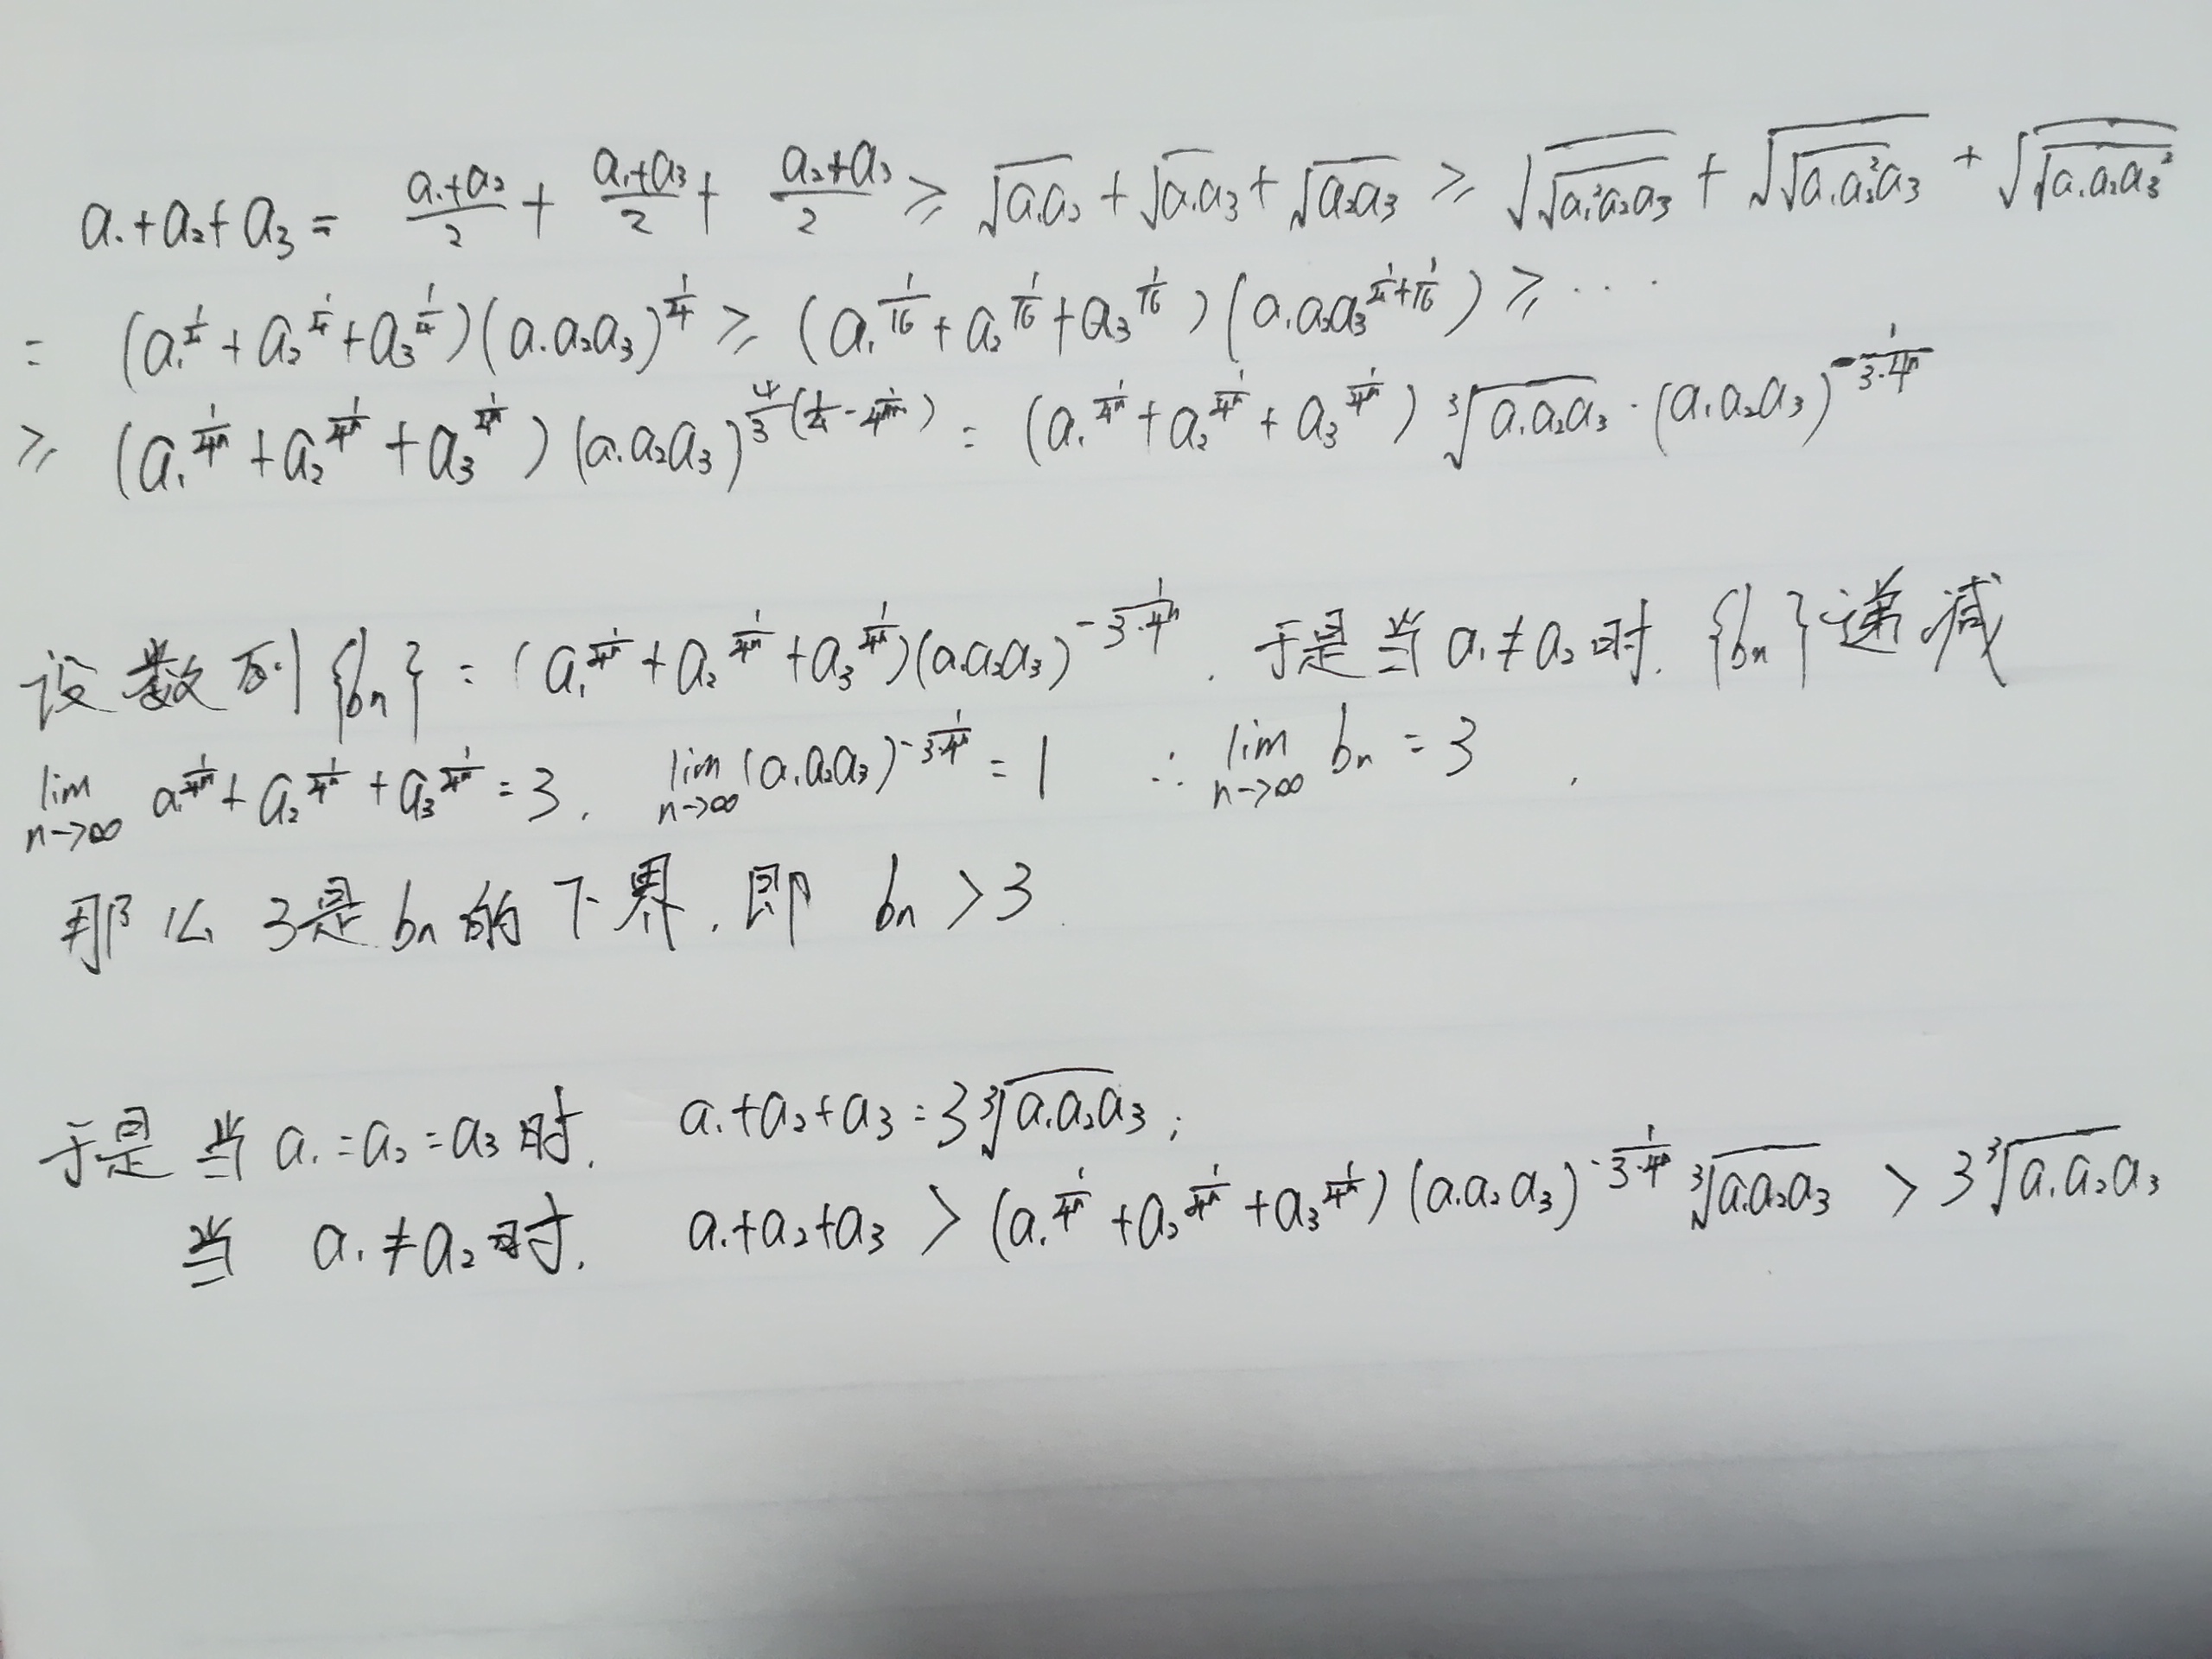 a₁+a₂+a₃ = (a₁+a₂)/2 + (a₁+a₃)/2 + (a₂+a₃)/2 ≥ √(a₁a₂) + √(a₁a₃) + √(a₂a₃) ≥ √(√(a₁²a₂a₃)) + √(√(a₁a₂²a₃)) + √(√(a₁a₂a₃²))
= (a₁^(1/4) + a₂^(1/4) + a₃^(1/4))(a₁a₂a₃)^(1/4) ≥ (a₁^(1/16) + a₂^(1/16) + a₃^(1/16))(a₁a₂a₃^(1/4+1/16)) ≥ ···
≥ (a₁^(1/4ⁿ) + a₂^(1/4ⁿ) + a₃^(1/4ⁿ))(a₁a₂a₃)^(4/3(1/4 - 1/4ⁿ⁺¹)) = (a₁^(1/4ⁿ) + a₂^(1/4ⁿ) + a₃^(1/4ⁿ)) ³√(a₁a₂a₃) · (a₁a₂a₃)^(-1/(3·4ⁿ))
设数列{bₙ} = (a₁^(1/4ⁿ) + a₂^(1/4ⁿ) + a₃^(1/4ⁿ))(a₁a₂a₃)^(-1/(3·4ⁿ)). 于是当 a₁≠a₂时. {bₙ}递减
lim n→∞ a₁^(1/4ⁿ) + a₂^(1/4ⁿ) + a₃^(1/4ⁿ) = 3. lim n→∞ (a₁a₂a₃)^(-1/(3·4ⁿ)) = 1 ∴ lim n→∞ bₙ = 3 .
那么 3是bₙ的下界. 即 bₙ > 3.
于是 当 a₁=a₂=a₃时. a₁+a₂+a₃ = 3³√(a₁a₂a₃) ;
当 a₁≠a₂时. a₁+a₂+a₃ > (a₁^(1/4ⁿ) + a₂^(1/4ⁿ) + a₃^(1/4ⁿ))(a₁a₂a₃)^(-1/(3·4ⁿ)) ³√(a₁a₂a₃) > 3³√(a₁a₂a₃)